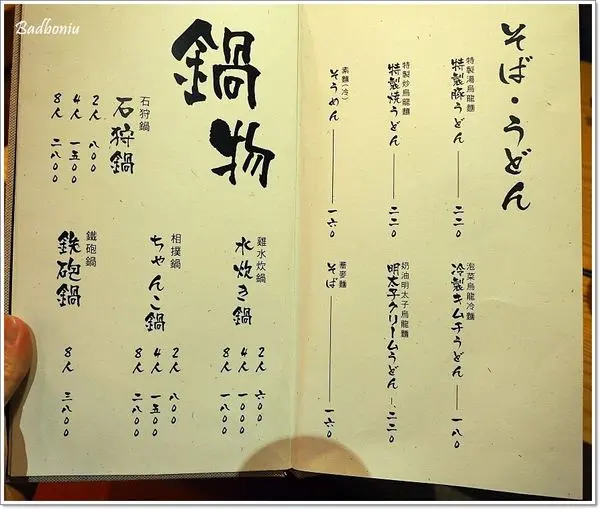 Badboniu
そば・うどん
特製湯烏龍麵
特製豚うどん 二二〇
泡菜烏龍冷麵
冷製キムチうどん 一八〇
特製炒烏龍麵
特製焼うどん 二二〇
奶油明太子烏龍麵
明太子クリームうどん 二二〇
素麵(冷)
そうめん 一六〇
蕎麥麵
そば 一六〇
鍋物
石狩鍋
石狩鍋
2人 八〇〇
4人 一五〇〇
8人 二八〇〇
雞水炊鍋
水炊き鍋
2人 六〇〇
4人 一〇〇〇
8人 一八〇〇
相撲鍋
ちゃんこ鍋
2人 八〇〇
4人 一五〇〇
8人 二八〇〇
鐵砲鍋
鉄砲鍋
8人 三八〇〇